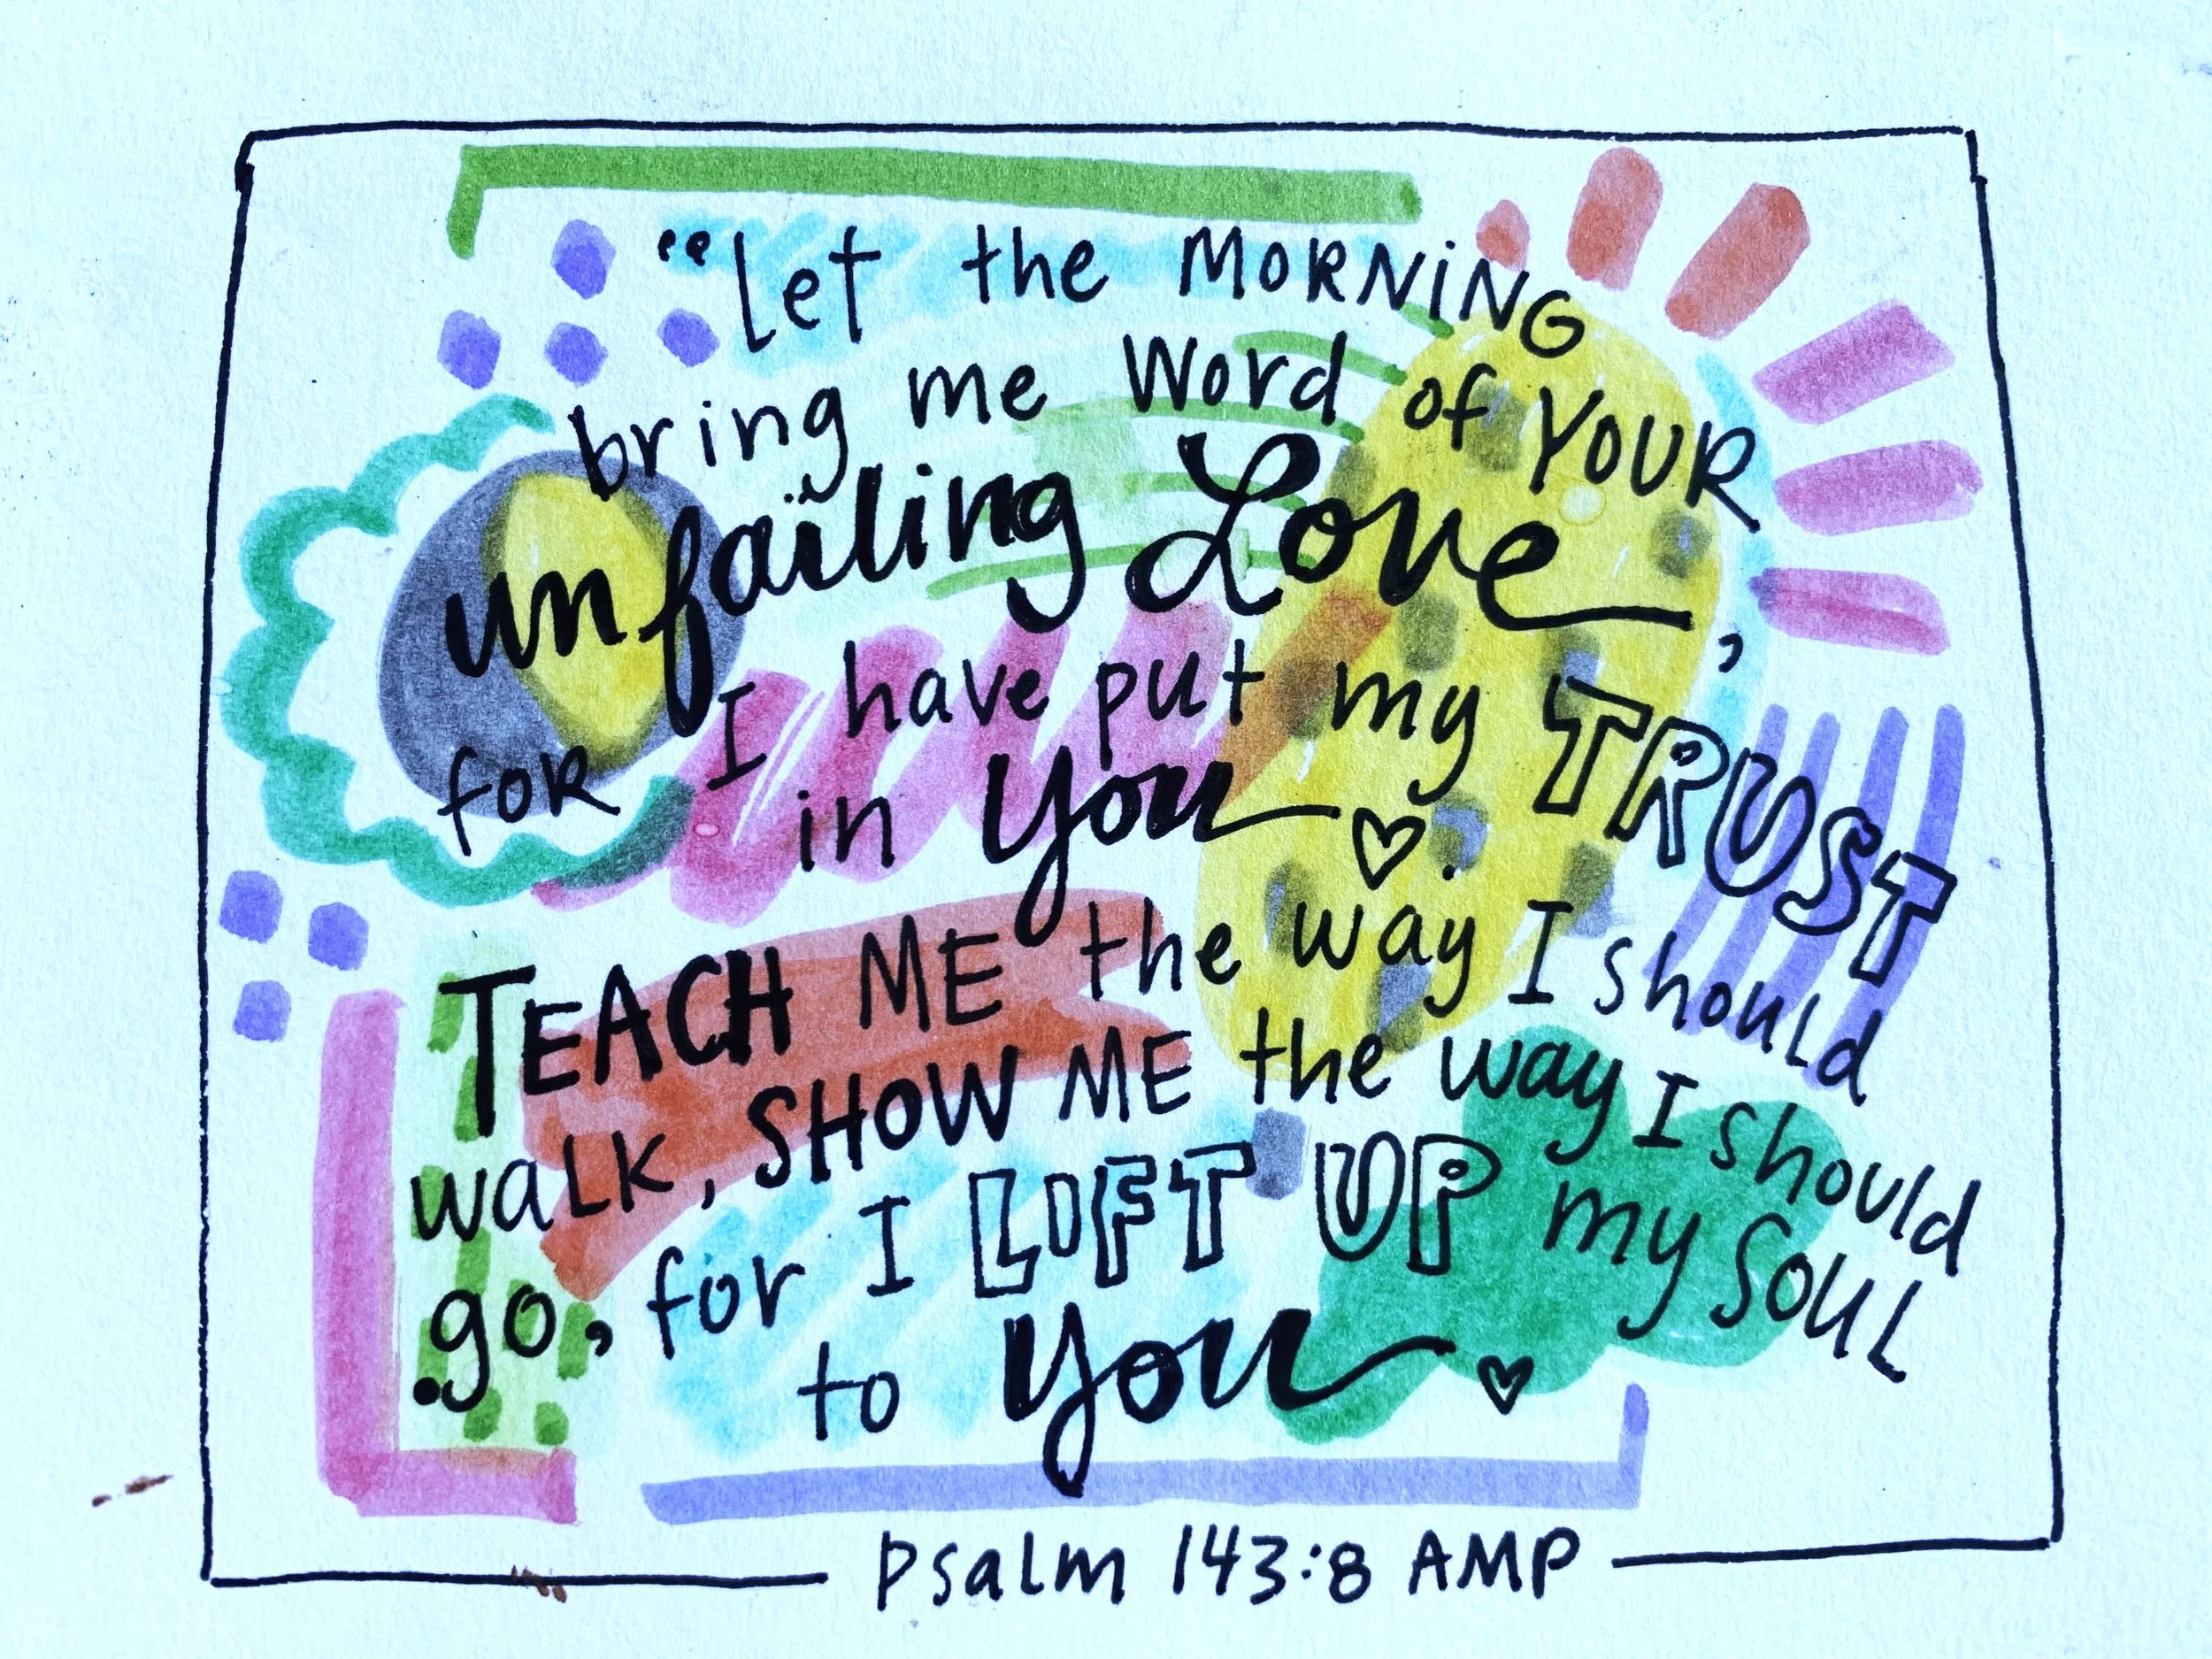 “Let the MORNiNG
bring me Word of YOUR
unfailing Love,
foR I have put my TRUST
in You ♡.
TEACH ME the way I should
waLK, SHOW ME the way I should
go, for I LIFT UP my SOUL
to You ♡
Psalm 143:8 AMP